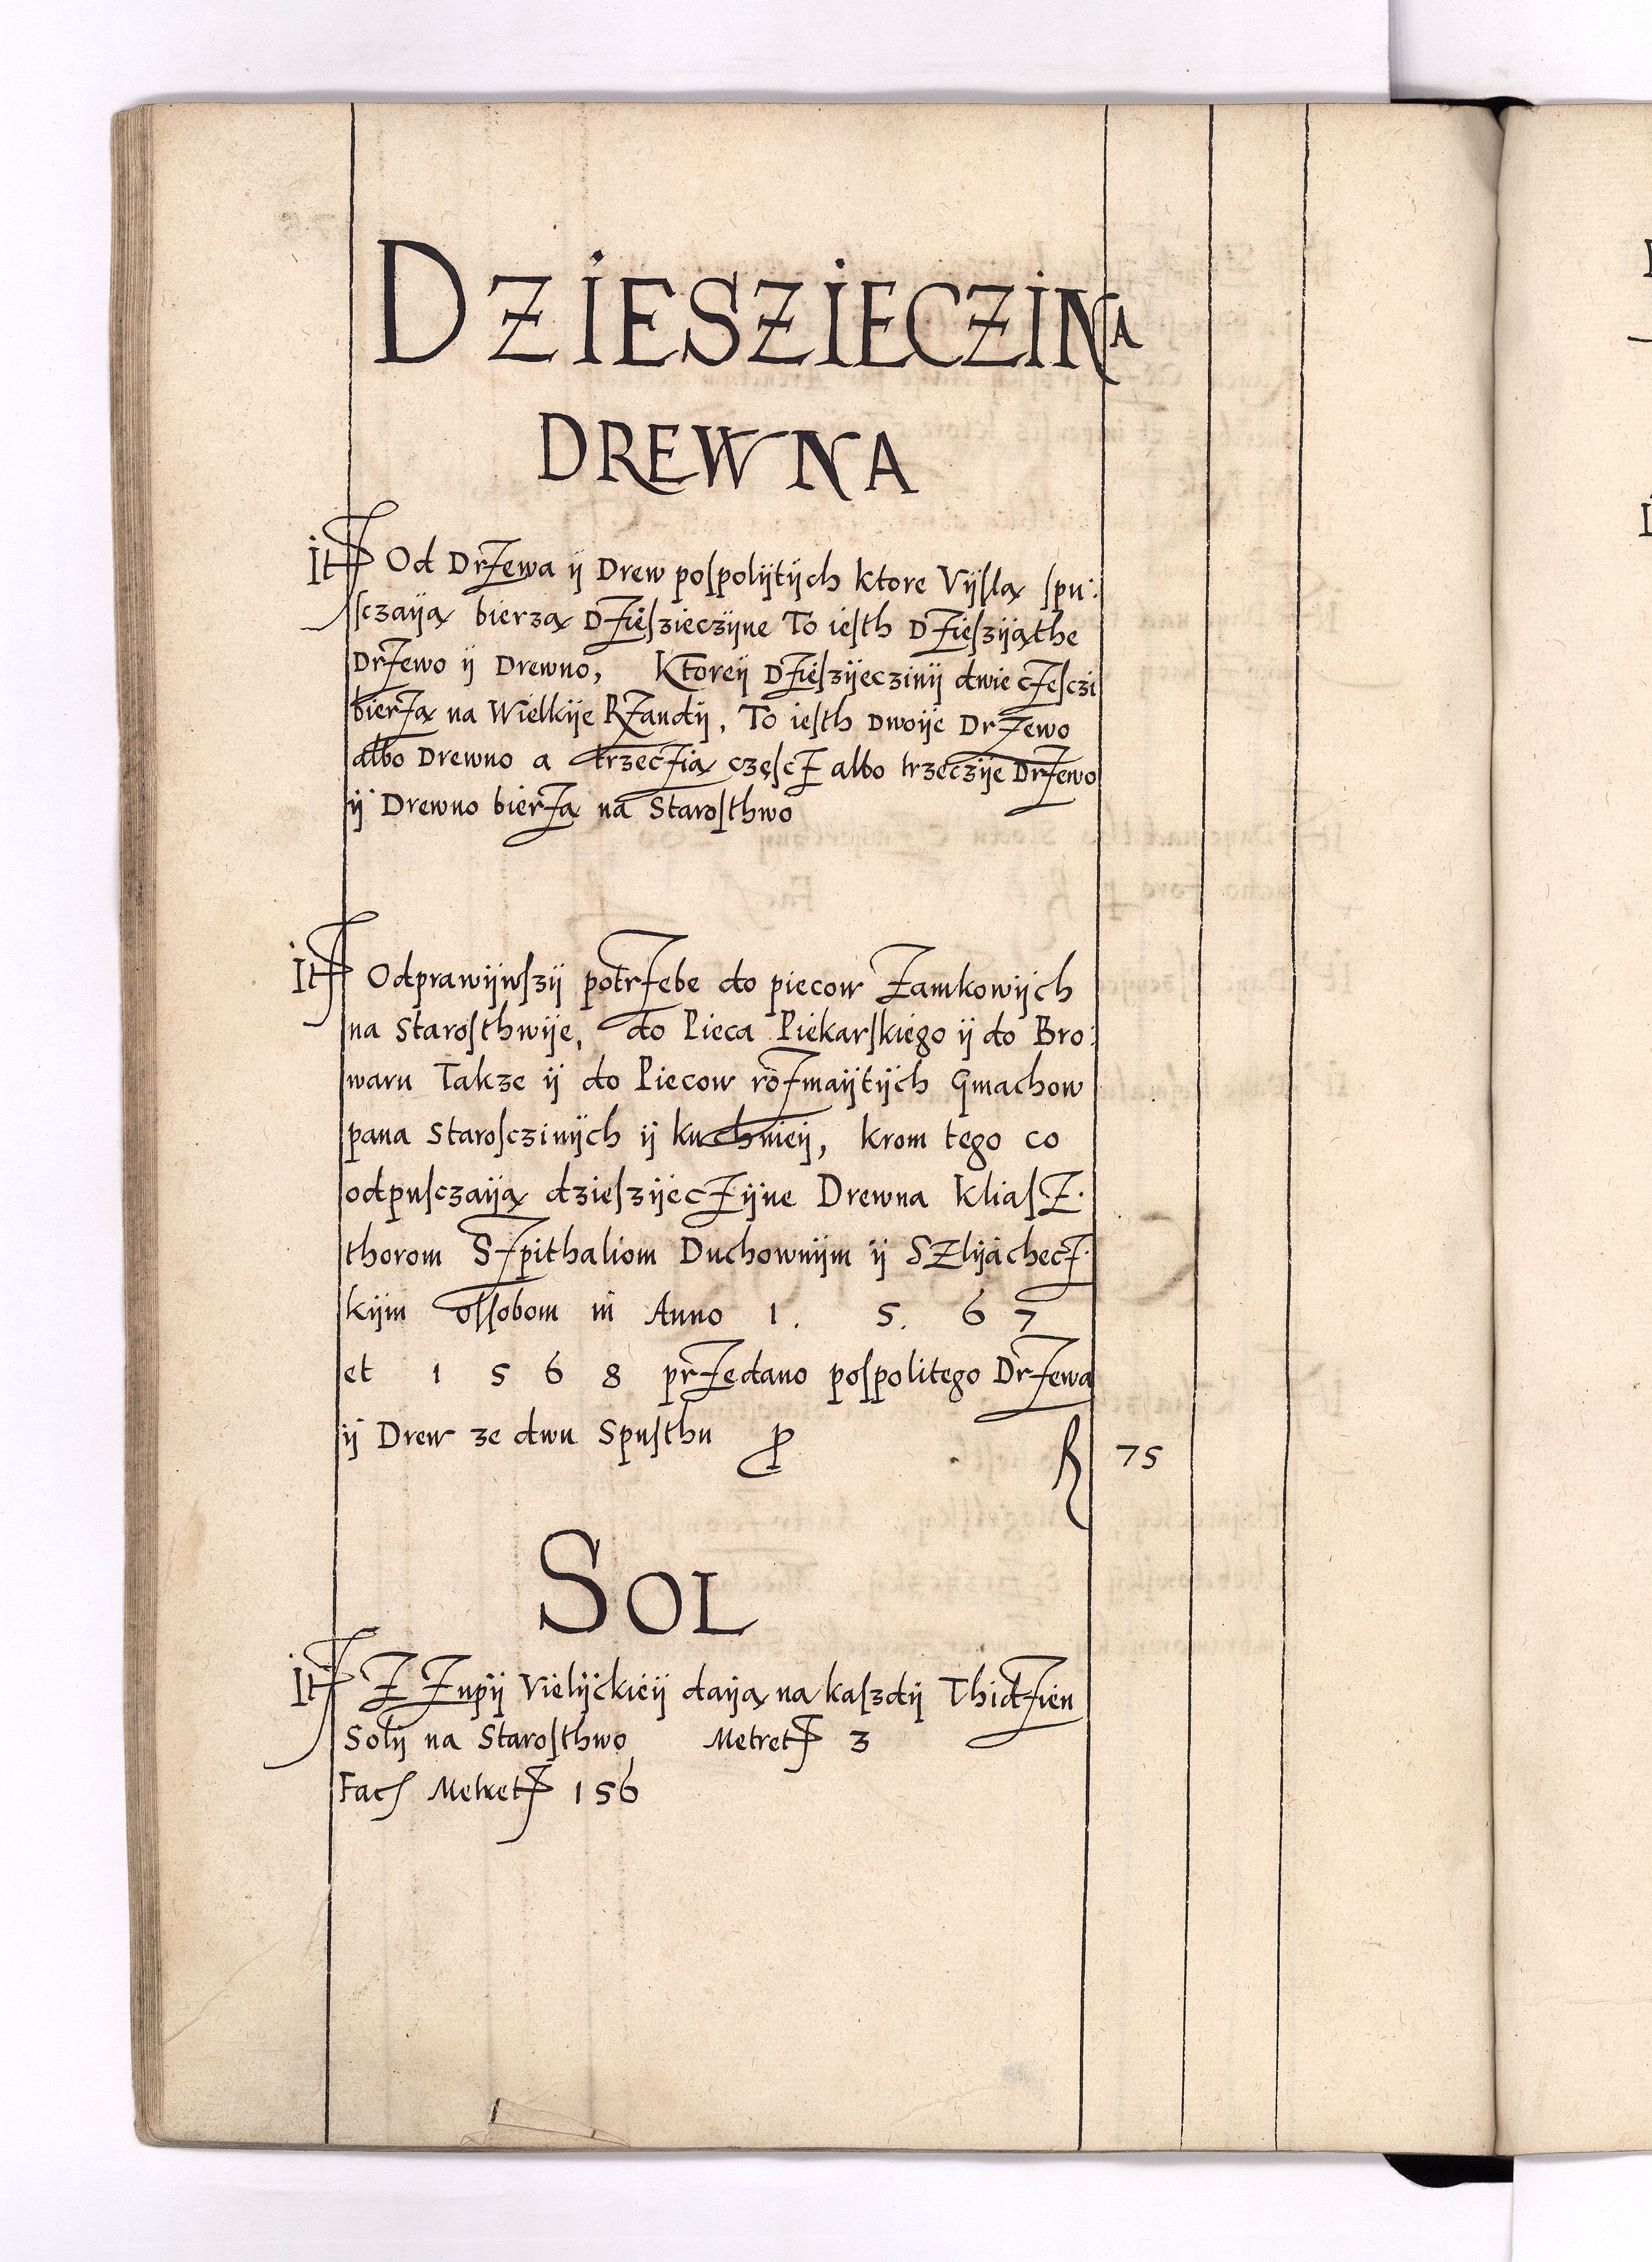 DZIESZIECZINA
DREWNA
It Od Drzewa ÿ Drew poſpolÿtÿch Ktore Vÿſlą ſpu:
ſczaÿą bierzą Dzieſzieczÿne To ieſth Dzieſzÿąthe
Drzewo ÿ Drewno, Ktoreÿ Dzieſzÿeczinÿ dwie czeſczi
bierzą na Wielkÿe Rzandÿ, To ieſth Dwoÿe Drzewo
albo Drewno a trzeczią częſcz albo trzeczÿe Drzewo
ÿ Drewno bierzą na Staroſthwo
It Odprawÿwſzÿ potrzebe do piecow Zamkowÿch
na Staroſthwÿe, do Pieca Piekarſkiego ÿ do Bro:
waru Takze ÿ do Piecow rozmaÿtÿch Gmachow
pana Staroſczinÿch ÿ kuchnieÿ, krom tego co
odpuſczaÿą dzieſzÿeczÿne Drewna Kliaſz.
thorom Szpithaliom Duchownÿm ÿ Szlÿachecz.
kÿm oſſobom in Anno 1. 5. 6 7
et 1 5 6 8 przedano poſpolitego Drzewa
ÿ Drew ze dwu Spuſthu 75
SOL
It Z Zupÿ Vielÿckieÿ daÿą na kaſzdÿ Thidzien
Solÿ na Staroſthwo Metret 3
Fac Metret 156